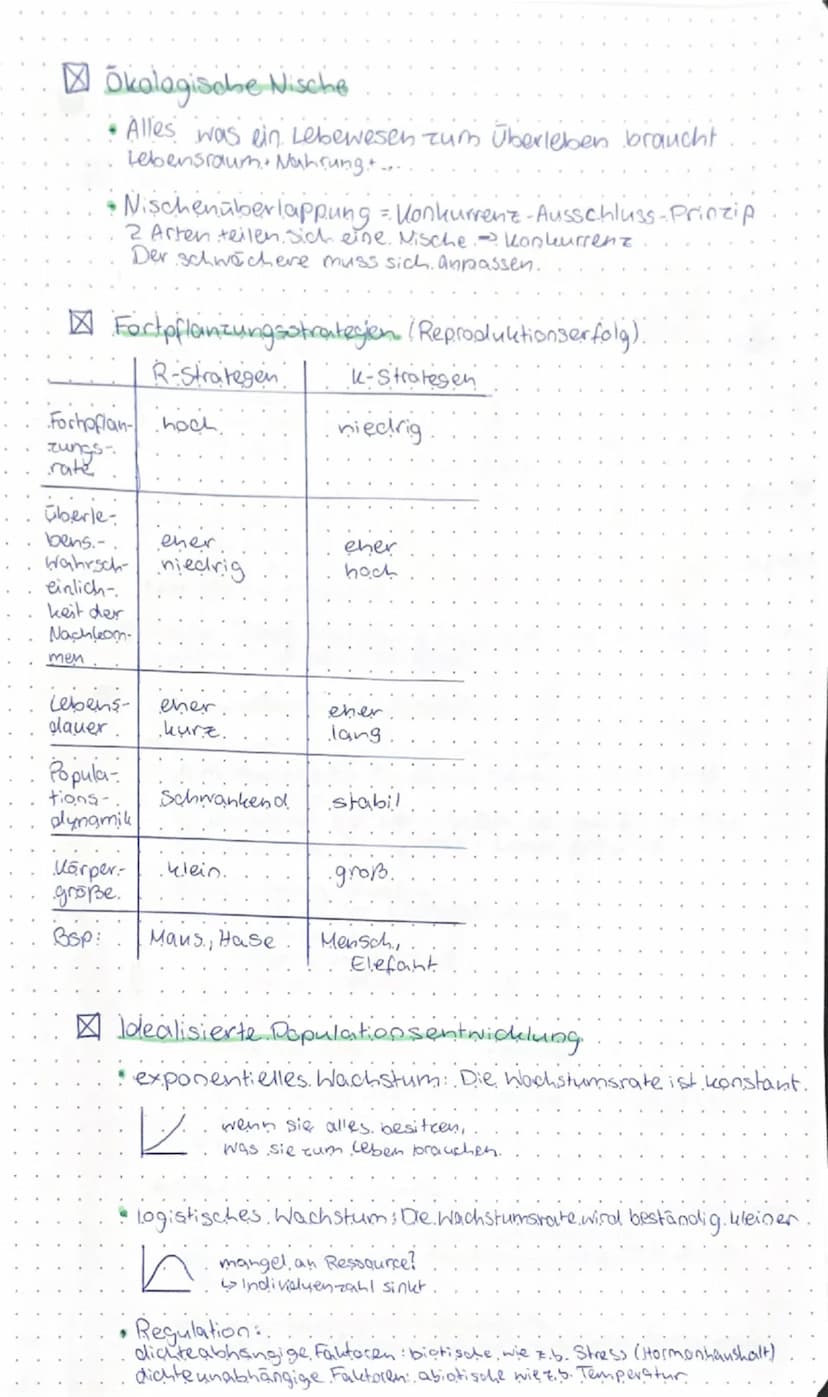 Ökologische Nische
• Alles was ein Lebewesen zum Überleben braucht
Lebensraum + Nahrung + ...
• Nischenüberlappung = Konkurrenz-Ausschluss-Prinzip
2 Arten teilen sich eine Nische → Konkurrenz
Der schwächere muss sich anpassen.
Fortpflanzungsstrategien (Reproduktionserfolg)
R-Strategen K-Strategen
Fortpflan- hoch niedrig
zungs-
rate
Überle-
bens- eher eher
wahrsch- niedrig hoch
einlich-
keit der
Nachkom-
men
Lebens- eher eher
dauer kurz lang
Popula-
tions- schwankend stabil
dynamik
Körper- klein groß
größe
Bsp: Maus, Hase Mensch,
Elefant
Idealisierte Populationsentwicklung
• exponentielles Wachstum: Die Wachstumsrate ist konstant.
wenn sie alles besitzen,
was sie zum Leben brauchen.
• logistisches Wachstum: Die Wachstumsrate wird beständig kleiner
mangel an Ressource?
↳ Individuenzahl sinkt
• Regulation:
dichteabhängige Faktoren: biotische wie z.b. Stress (Hormonhaushalt)
dichteunabhängige Faktoren: abiotische wie z.b. Temperatur